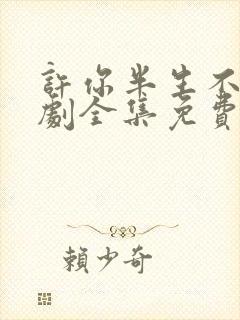 許你半生不
劇全集免費
賴少奇